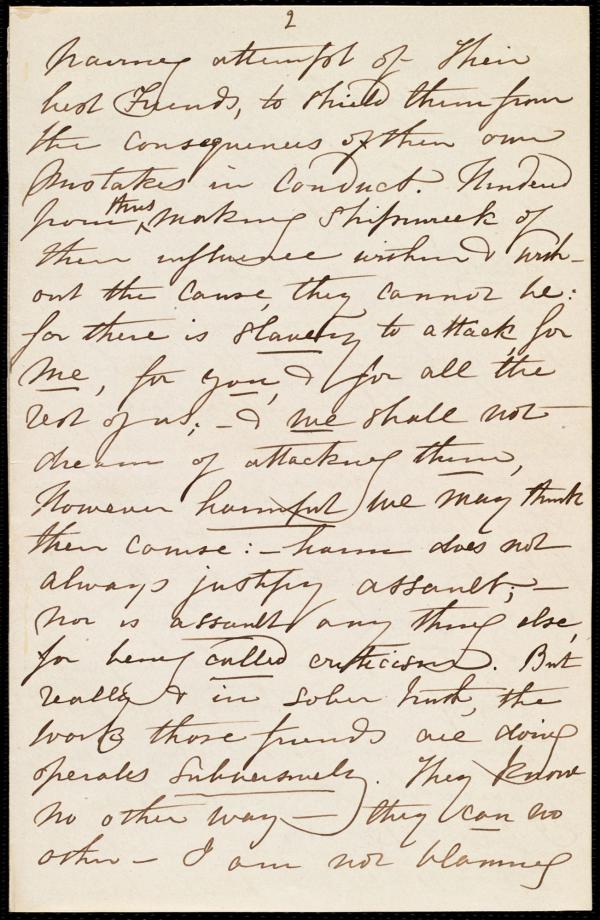 2
attempt of their
best Friends, to shield them from
the consequences of their own
mistakes in conduct. Hindered
from thus making shipwreck of
their influence within & with-
out the cause, they cannot be:
for there is slavery to attack, for
me, for you, & for all the
rest of us; - & we shall not
dream of attacking them,
However harmful we may think
their course: - harm does not
always justify assault; -
nor is assault any thing else,
for being called criticism. But
really & in sober truth, the
work those friends are doing
operates subversively. They know
no other way - they can no
other - I am not blaming